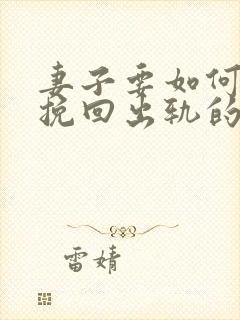 妻子要如何
挽回出轨的
雷婧